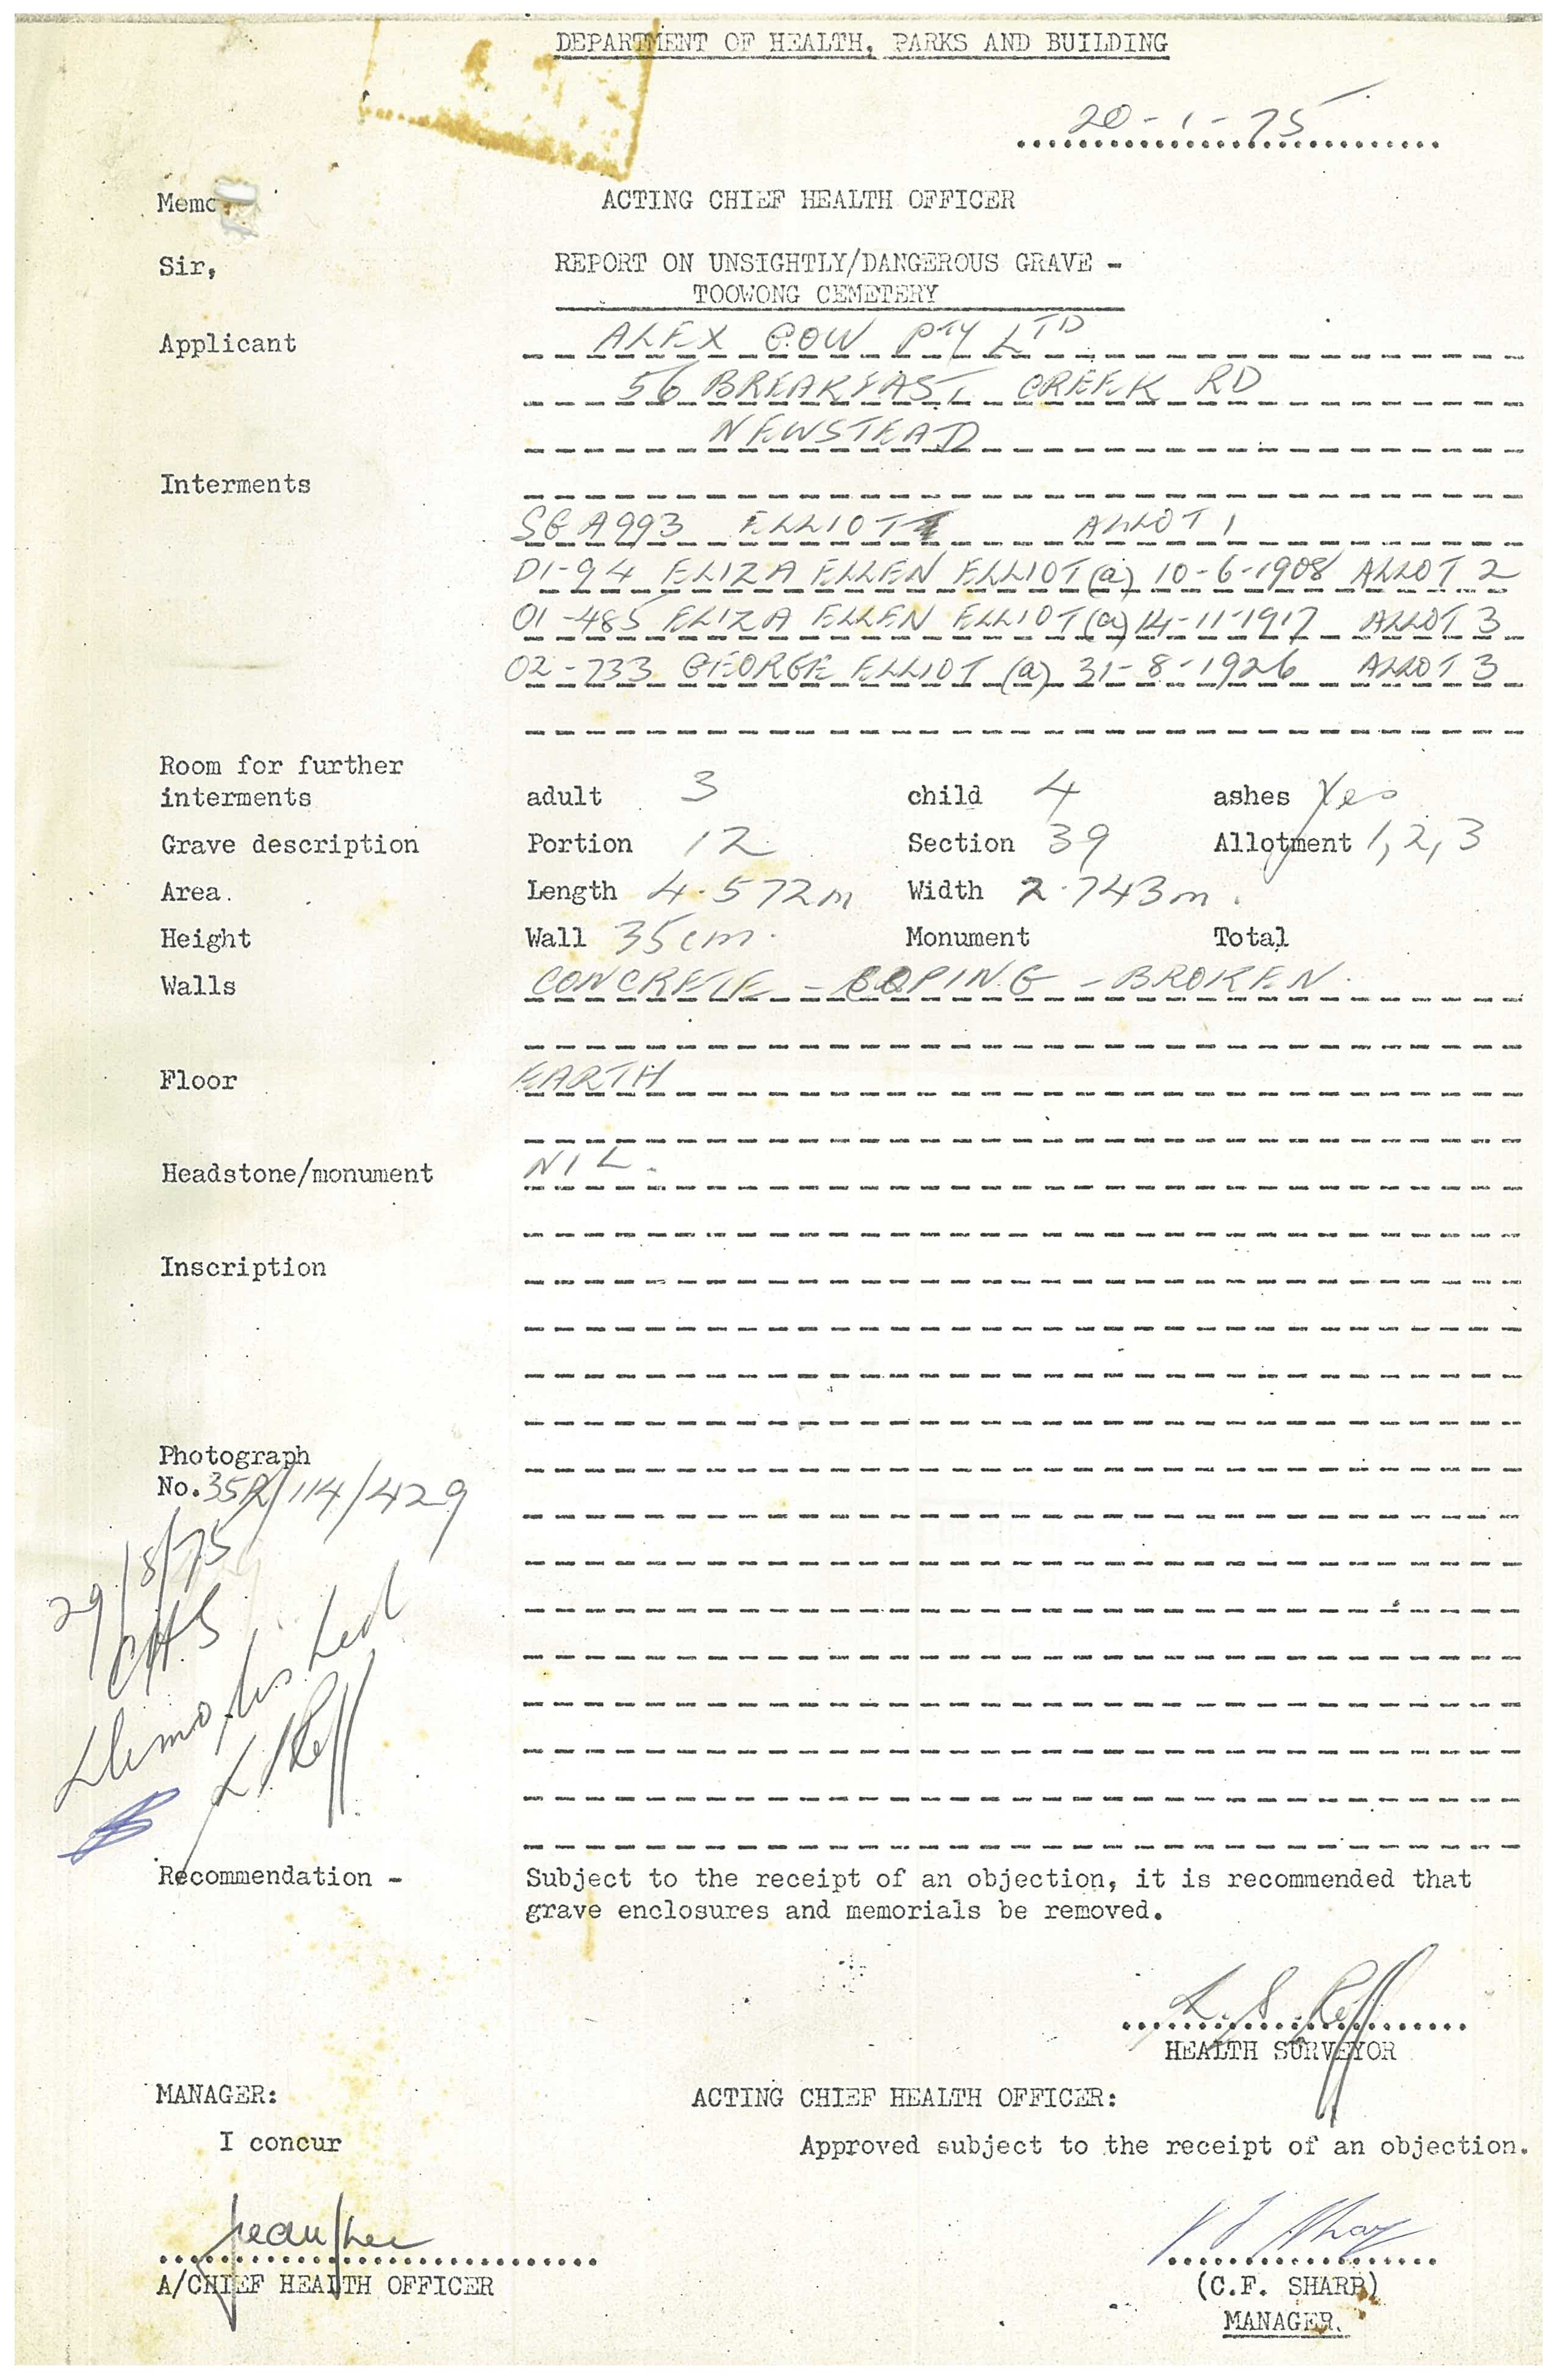 DEPARTMENT OF HEALTH, PARKS AND BUILDING
20-1-75
Memo ACTING CHIEF HEALTH OFFICER
Sir, REPORT ON UNSIGHTLY/DANGEROUS GRAVE -
TOOWONG CEMETERY
Applicant ALEX GOW PTY LTD
56 BREAKFAST CREEK RD
NEWSTEAD
Interments
SGA993 ELLIOTT ALLOT 1
D1-94 ELIZA ELLEN ELLIOT (a) 10-6-1908 ALLOT 2
01-485 ELIZA ELLEN ELLIOT (a) 14-11-1917 ALLOT 3
02-733 GEORGE ELLIOT (a) 31-8-1926 ALLOT 3
Room for further
interments adult 3 child 4 ashes Yes
Grave description Portion 12 Section 39 Allotment 1, 2, 3
Area. Length 4.572m Width 2.743m.
Height Wall 35cm. Monument Total
Walls CONCRETE - COPING - BROKEN.
Floor EARTH
Headstone/monument NIL.
Inscription
Photograph
No. 35R/114/429
29/8/75
CHS
Demolished
Recommendation - Subject to the receipt of an objection, it is recommended that
grave enclosures and memorials be removed.
HEALTH SURVEYOR
MANAGER: ACTING CHIEF HEALTH OFFICER:
I concur Approved subject to the receipt of an objection.
A/CHIEF HEALTH OFFICER (C.F. SHARP)
MANAGER.